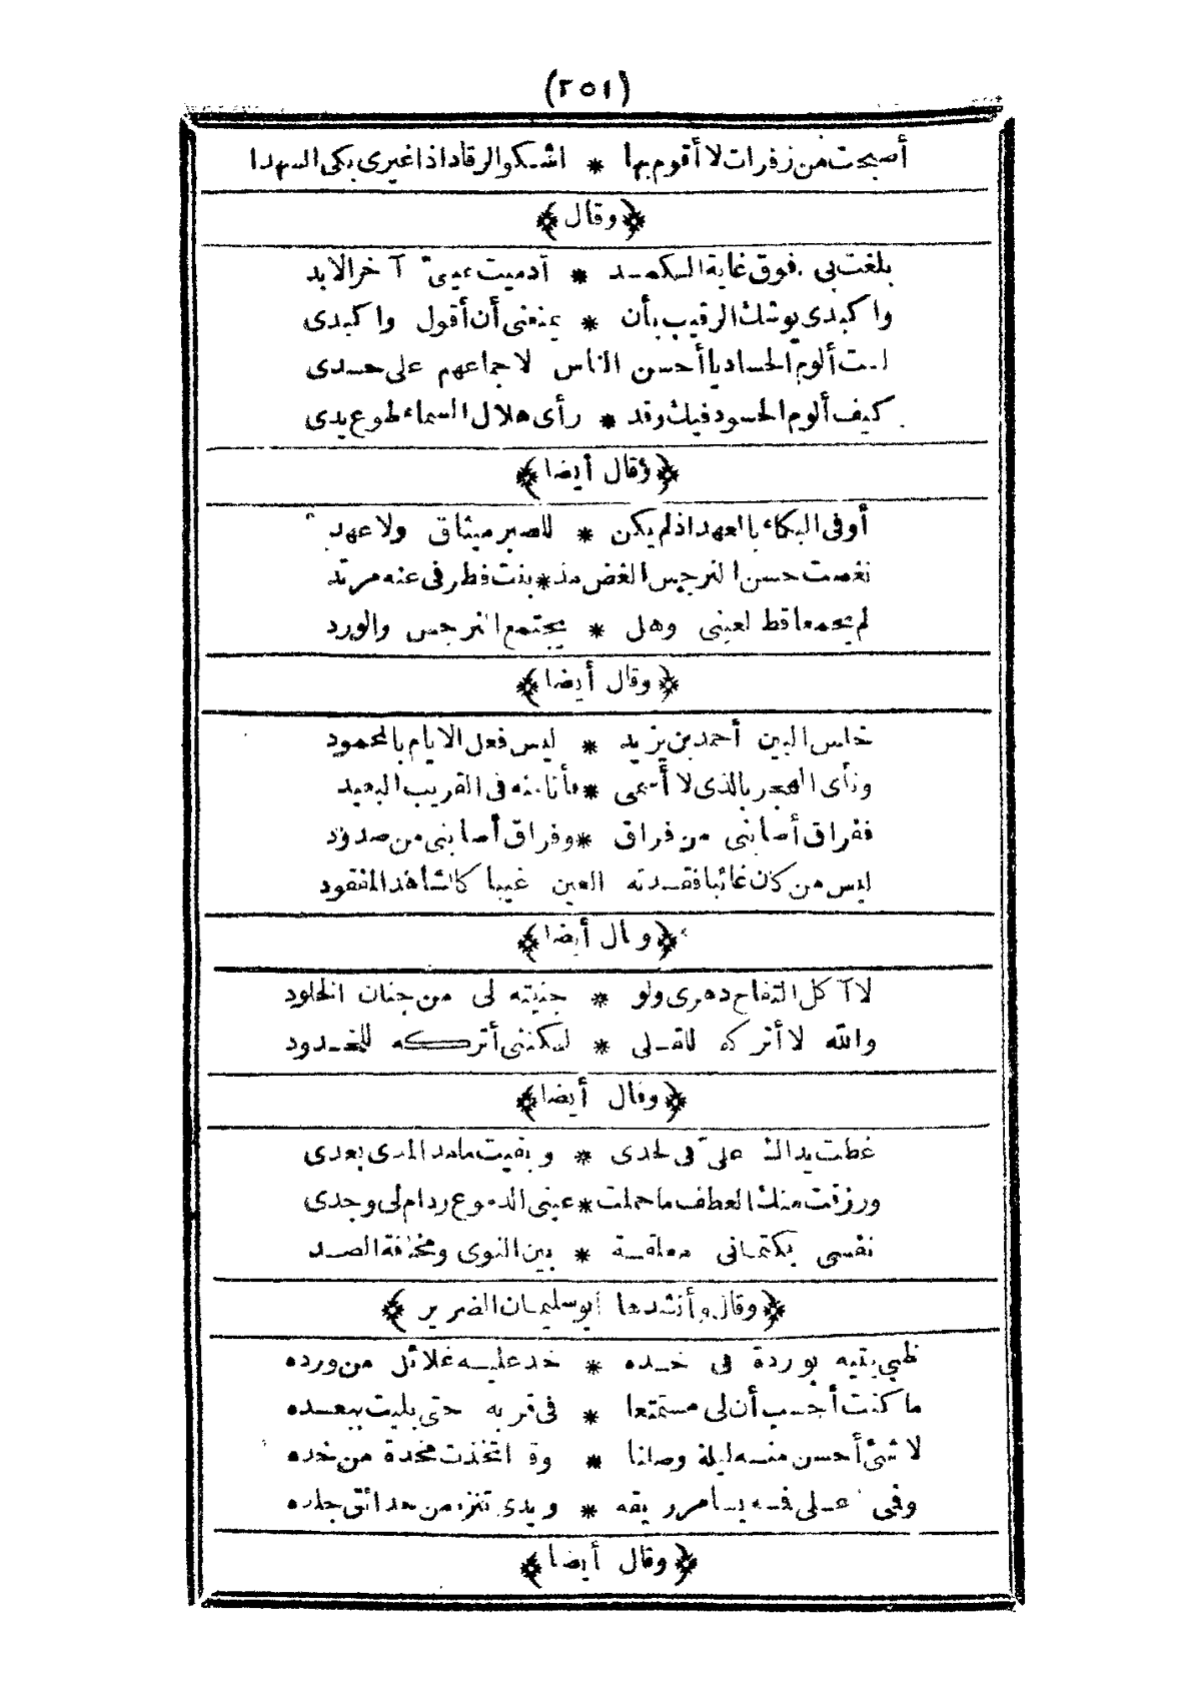 (٢٥١)
أصبحت من زفرات لا أقوم بها * اشكو الرقاد اذا غيرى بكى السهدا
﴿وقال﴾
بلغت بى فوق غاية الكمد * أدميت عينىّ آخر الابد
واكبدى يوشك الرقيب بأن * يمنعنى أن أقول واكبدى
لست ألوم الحساد يا أحسن الناس لاجماعهم على حسدى
كيف ألوم الحسود فيك وقد * رأى هلال السماء طوع يدى
﴿وقال أيضا﴾
أوفى البكاء بالعهد اذ لم يكن * للصبر ميثاق ولا عهد
نغصت حسن النرجس الغض مذ * بنت فطرفى عنه مرتد
لم يجمعا قط لعينى وهل * يجتمع النرجس والورد
﴿وقال أيضا﴾
خلس البين أحمد بن يزيد * ليس فعل الايام بالمحمود
ونأى الهجر بالذى لا أسمى * فأنا منه فى القريب البعيد
ففراق أصابنى من فراق * وفراق أصابنى من صدود
ليس من كان غائبا فقدته العين غيبا كالشاهد المفقود
﴿وقال أيضا﴾
لا آكل التفاح دهرى ولو * جنيته لى من جنان الخلود
والله لا أتركه للقلى * لكننى أتركه للخدود
﴿وقال أيضا﴾
غطت يداك علىّ فى لحدى * وبقيت ما مد المدى بعدى
ورزقت منك العطف ما حملت * عينى الدموع ودام لى وجدى
نفسى بكتمانى معلقة * بين النوى ومخافة الصد
﴿وقال وأنشدها أبو سليمان الضرير﴾
ظبى يتيه بوردة فى خده * خد عليه غلائل من ورده
ما كنت أحسب أن لى مستمتعا * فى قربه حتى بليت ببعده
لا شئ أحسن منه ليلة وصلنا * وقد اتخذت مخدة من خده
وفمى على فمه يسامر ريقه * ويدى تنزه من حدائق جلده
﴿وقال أيضا﴾